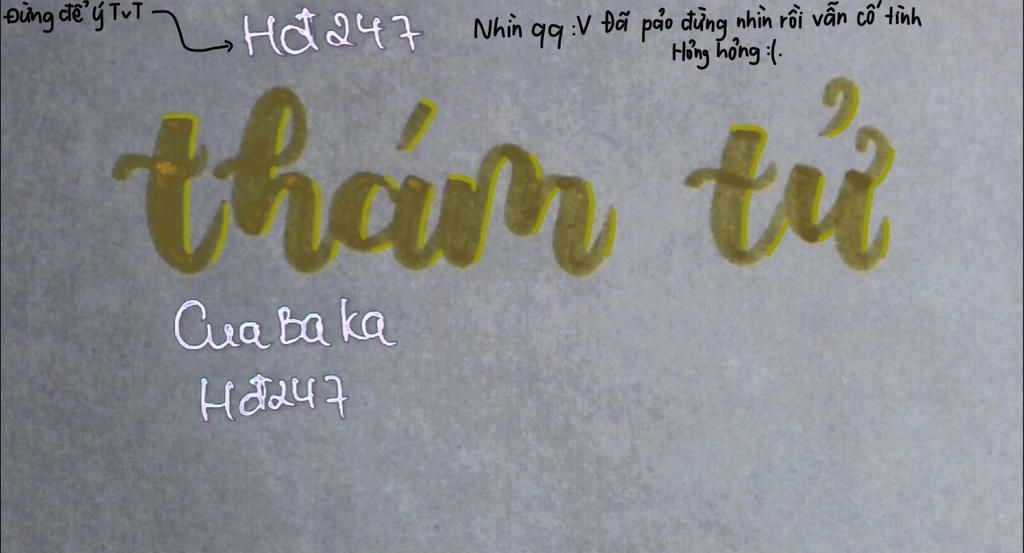 Đừng để ý TvT
Hđ247
Nhìn qq :V Đã pảo đừng nhìn rồi vẫn cố tình
Hỏng hỏng :(.
thám tử
Cua Ba ka
Hđ247